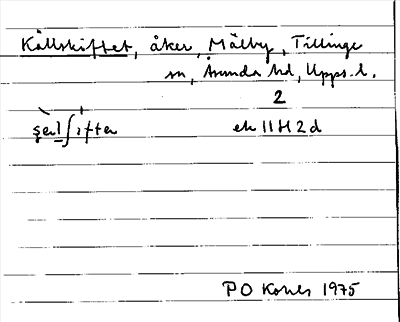 Källskiftet, åker, Mälby, Tillinge
sn, Åsunda hd, Upps. l.
2
ek 11H2d
P O Kones 1975